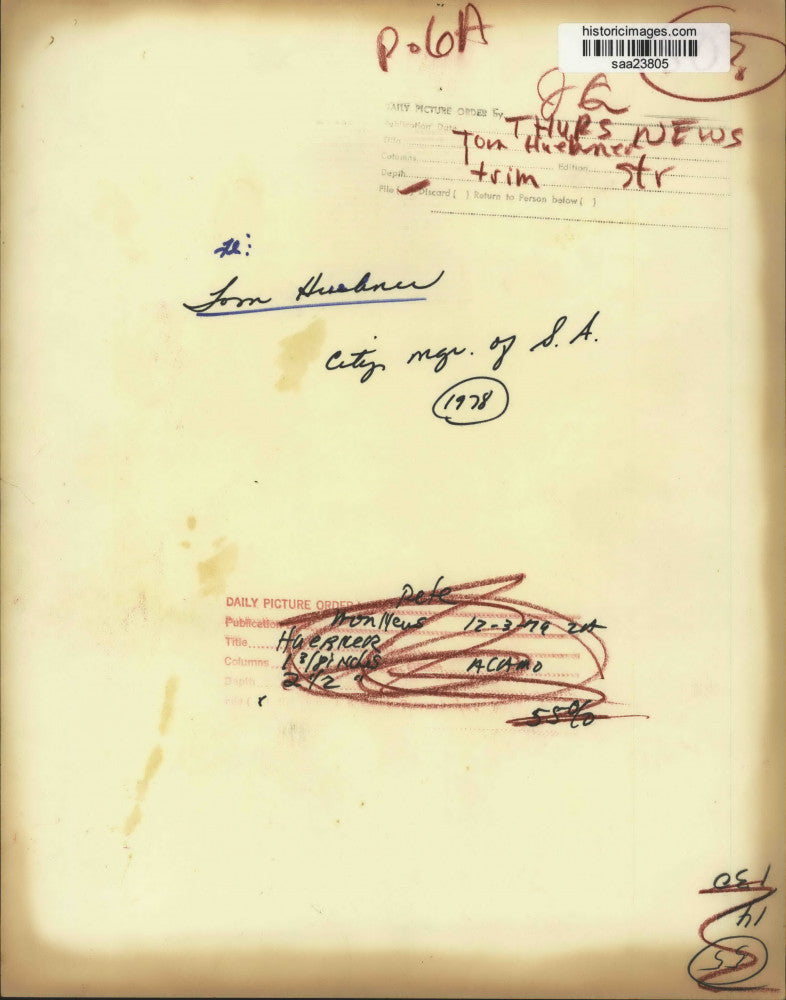 p.6A
historicimages.com
saa23805
JG
DAILY PICTURE ORDER By
Publication Date
THURS NEWS
Title
Tom Huebner
Columns
Edition
Depth
trim
str
File ( ) Discard ( ) Return to Person below ( )
Tom Huebner
City mgr. of S. A.
1978
Pete
DAILY PICTURE ORDER
Publication
Mon News 12-3-79 2A
Title
HUEBNER
Columns
1 3/8 pindus
ALAMO
Depth
2 1/2 "
55%
130
14
55